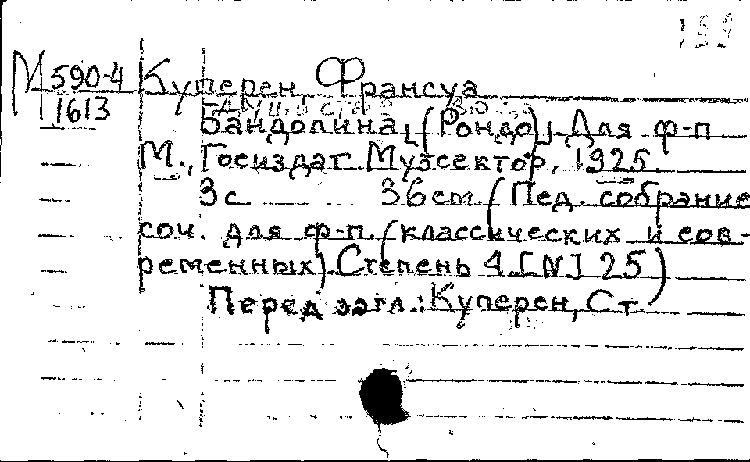 М 590-4 Куперен Франсуа
1613
Бандолина, (Рондо). Для ф-п
М., Госиздат Музсектор, 1925.
3 с 36 cm (Пед. собрание
соч. для ф-п. (классических и сов-
ременных) Степень 4 [N] 25)
Перед загл.: Куперен, Ст.